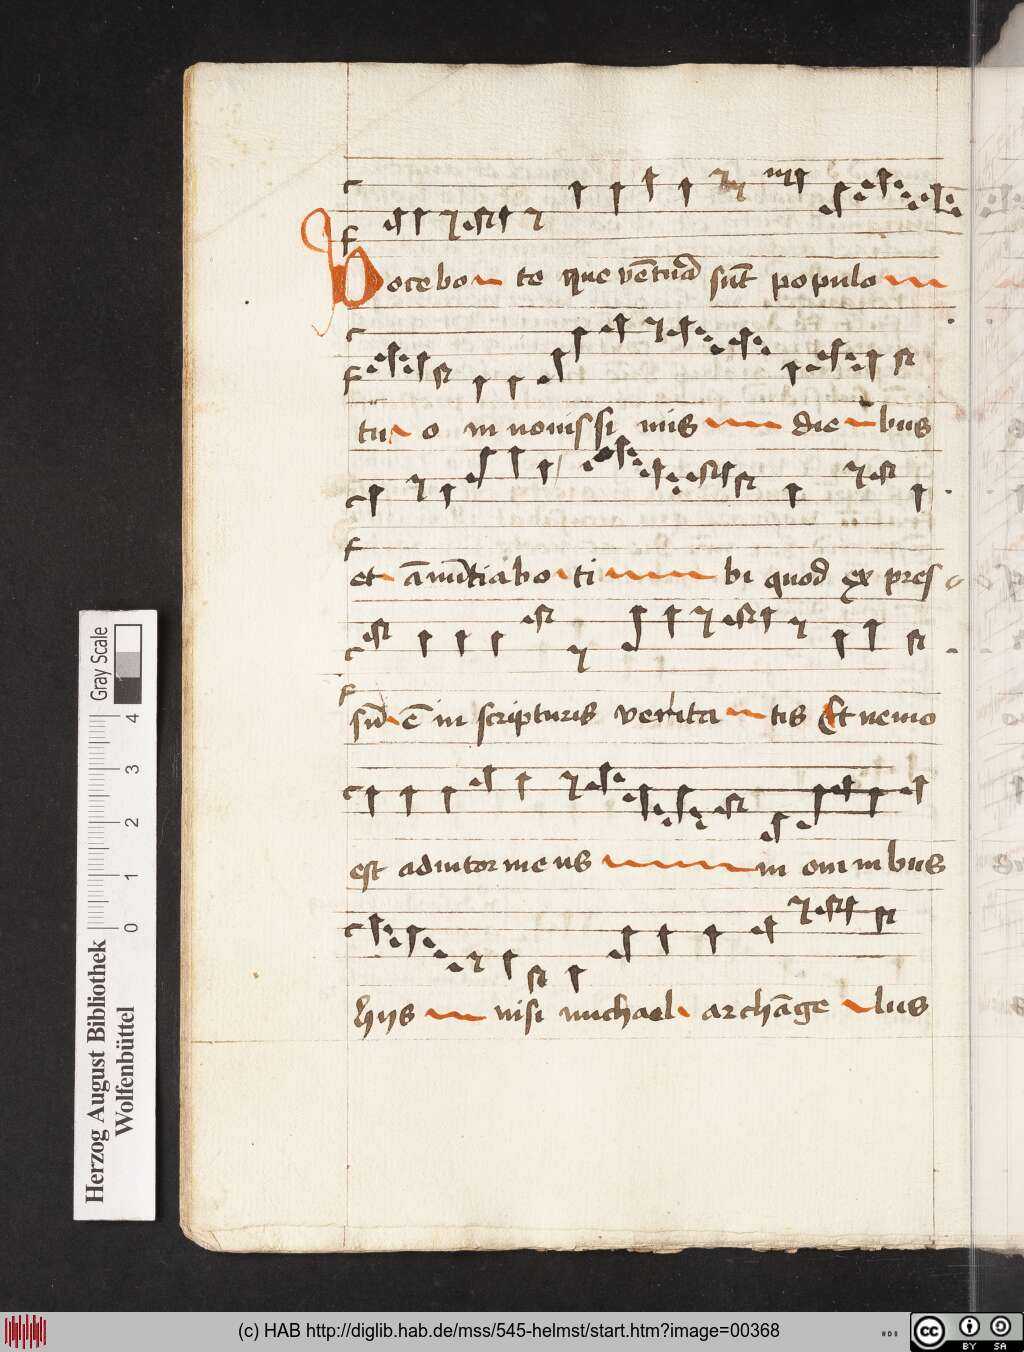 Docebo te que vētura sūt populo
tuo in nouissimis diebus
et ānūtiabo tibi quod expres
sū ē in scripturis veritatis Et nemo
est adiutor meus in omnibus
hijs nisi michael archāgelus
Herzog August Bibliothek
Wolfenbüttel
Gray Scale
0 1 2 3 4
(c) HAB http://diglib.hab.de/mss/545-helmst/start.htm?image=00368
cc BY SA